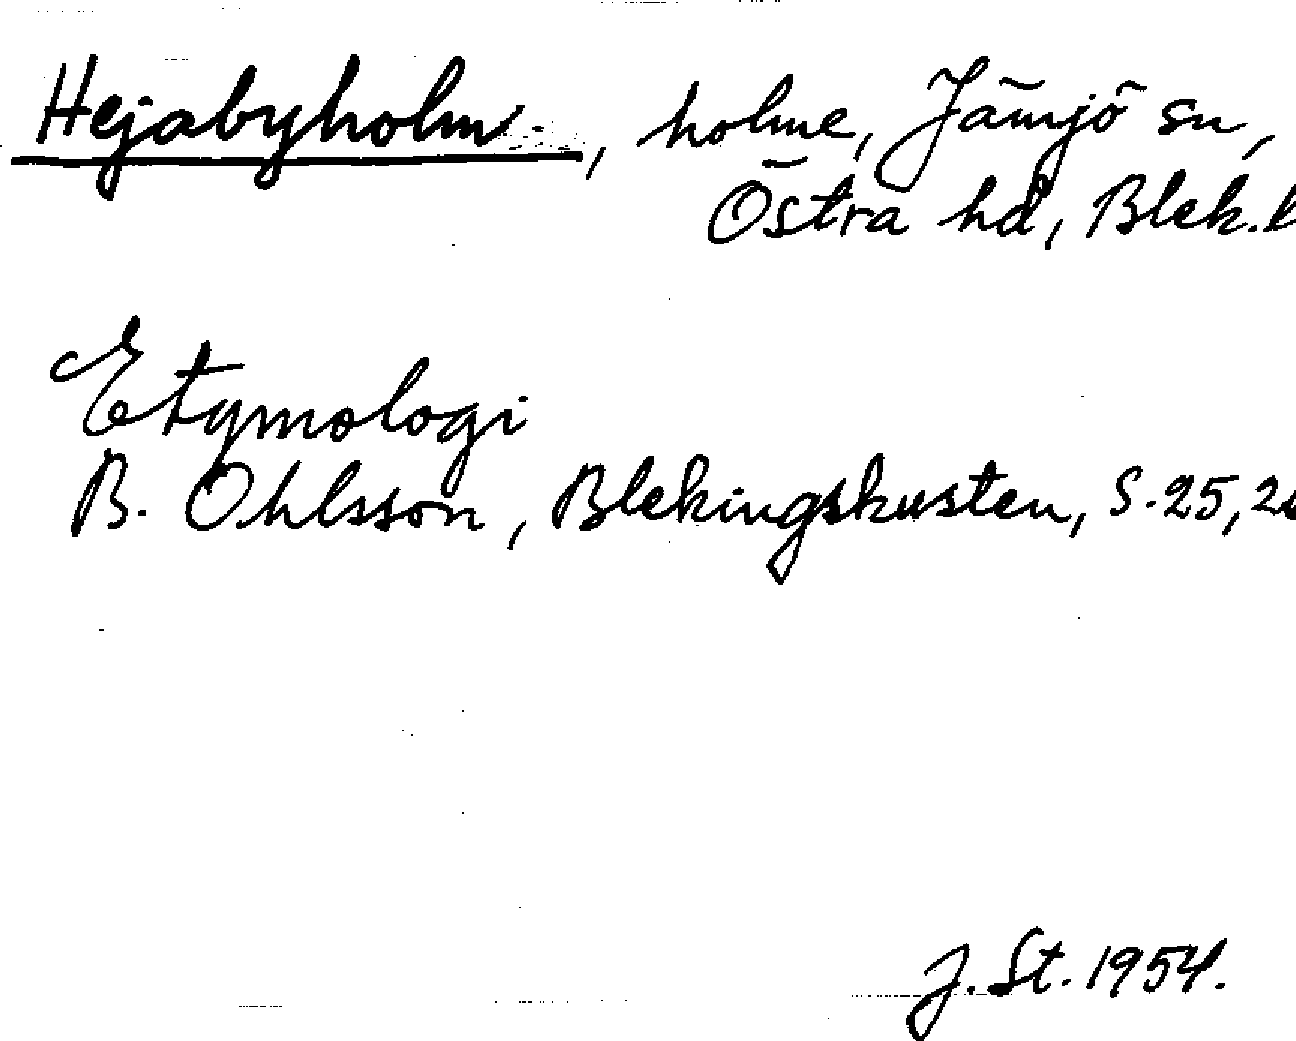 Hejabyholm, holme, Jämjö sn,
Östra hd, Blek.
Etymologi
B. Ohlsson, Blekingskusten, S. 25, 26
J. St. 1954.